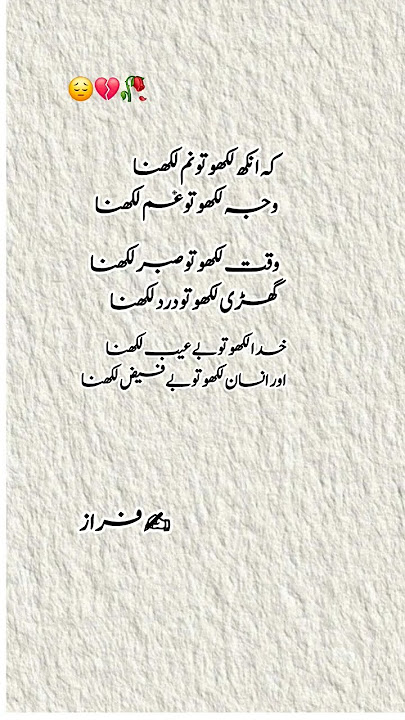 😔💔🥀
کہ انکھ لکھو تو نم لکھنا
وجہ لکھو تو غم لکھنا
وقت لکھو تو صبر لکھنا
گھڑی لکھو تو درد لکھنا
خدا لکھو تو بے عیب لکھنا
اور انسان لکھو تو بے فیض لکھنا
✍️فراز